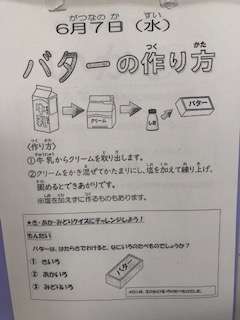 がつなのか すい
6月7日（水）
つく かた
バターの作り方
牛乳
クリーム
しお
バター
〈作り方〉
①牛乳からクリームを取り出します。
②クリームをかき混ぜてかたまりにし、塩を加えて練り上げ、
固めるとできあがりです。
※塩を加えずに作るものもあります。
★き・あか・みどりクイズにチャレンジしよう！
もんだい
バターは、はたらきでわけると、なにいろのたべものでしょうか？
① きいろ
② あかいろ
③ みどりいろ
バター